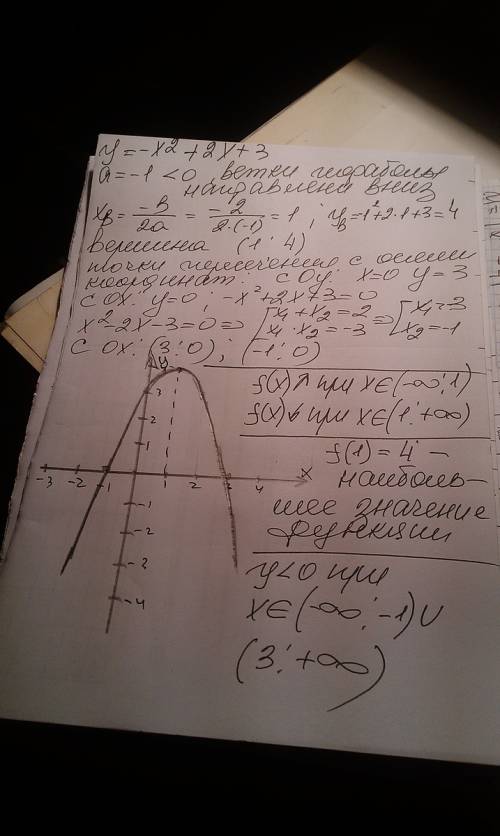 y=-x²+2x+3
a=-1<0 ветки параболы
направлени вниз
xв = -в/2a = -2/2·(-1) = 1 ; yв=1²+2·1+3=4
вершина (1 ; 4)
точки пересечения с осями
координат: с Oy: x=0 y=3
с OX: y=0; -x²+2x+3=0
x²-2x-3=0 => [x₁+x₂=2 x₁·x₂=-3 => [x₁=3 x₂=-1
с OX: (3;0); (-1;0)
f(x)↗ при x∈(-∞;1)
f(x)↘ при x∈(1;+∞)
f(1)=4 –
наиболь-
шее значение
функции
y<0 при
x∈(-∞;-1)∪
(3;+∞)
y
3
1
-3 -2 -1 1 2 3 4 x
-1
-2
-3
-4